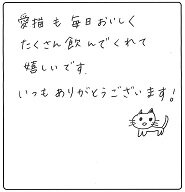 愛猫も毎日おいしく
たくさん飲んでくれて
嬉しいです.
いつもありがとうございます!